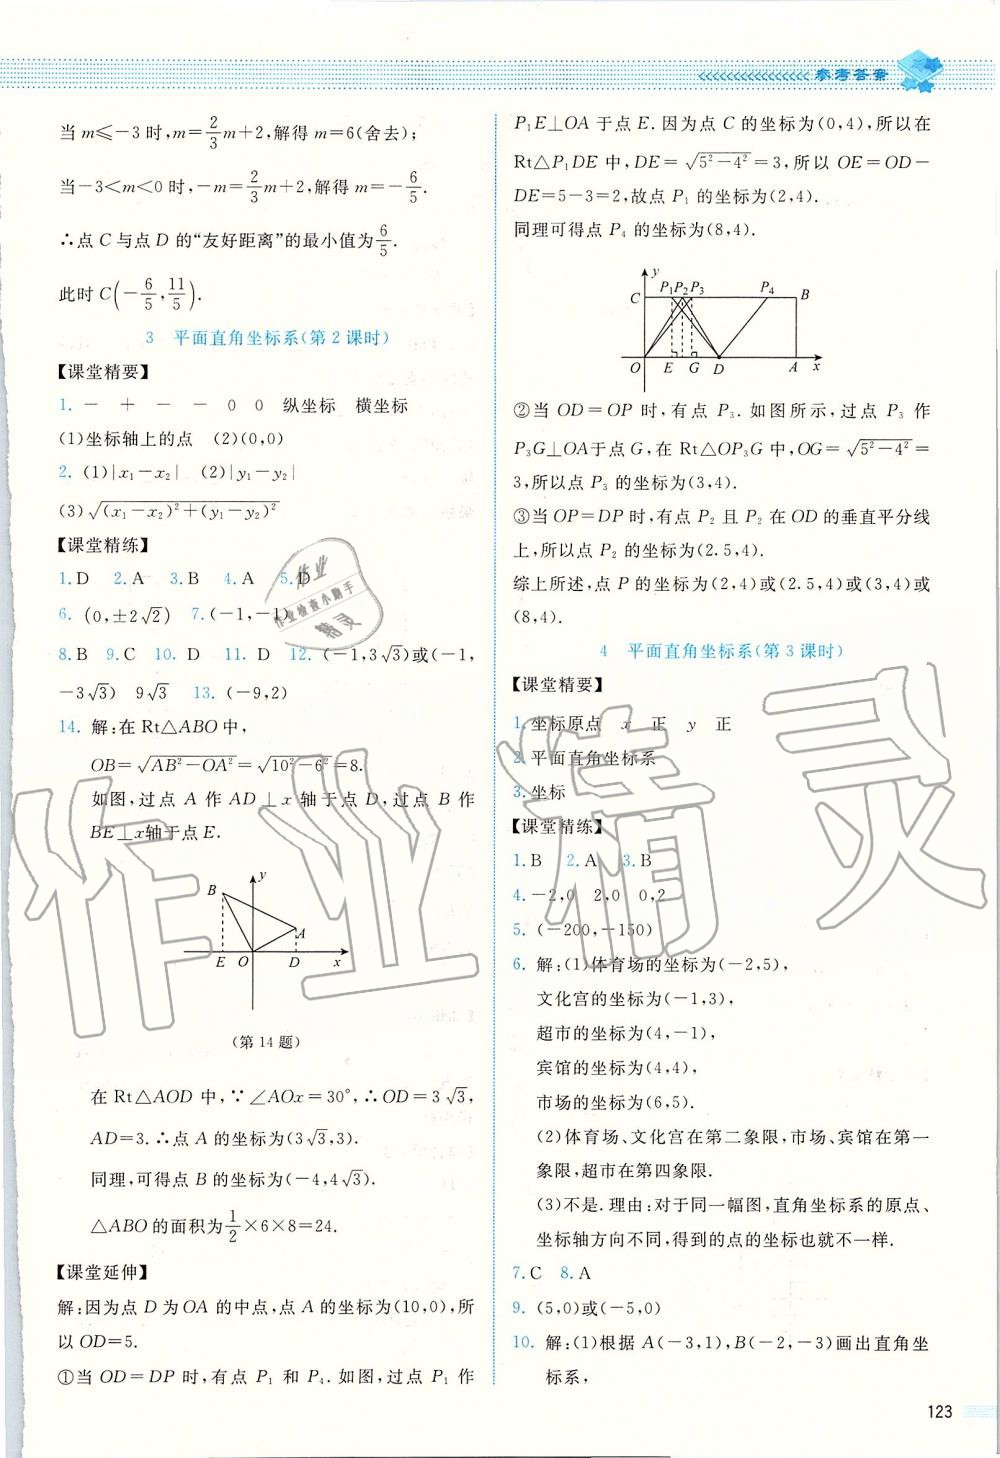 参考答案
当 m≤-3 时,m=2/3m+2,解得 m=6(舍去);
当-3<m<0 时,-m=2/3m+2,解得 m=-6/5.
∴点 C 与点 D 的“友好距离”的最小值为6/5.
此时 C(-6/5,11/5).
3 平面直角坐标系(第 2 课时)
【课堂精要】
1. - + - - 0 0 纵坐标 横坐标
(1)坐标轴上的点 (2)(0,0)
2. (1)|x₁-x₂| (2)|y₁-y₂|
(3)√((x₁-x₂)²+(y₁-y₂)²)
【课堂精练】
1. D 2. A 3. B 4. A 5. D
6. (0,±2√2) 7. (-1,-1)
8. B 9. C 10. D 11. D 12. (-1,3√3)或(-1,
-3√3) 9√3 13. (-9,2)
14. 解:在 Rt△ABO 中,
OB=√(AB²-OA²)=√(10²-6²)=8.
如图,过点 A 作 AD⊥x 轴于点 D,过点 B 作
BE⊥x轴于点 E.
y
B
A
E O D x
(第 14 题)
在 Rt△AOD 中,∵∠AOx=30°,∴OD=3√3,
AD=3.∴点 A 的坐标为(3√3,3).
同理,可得点 B 的坐标为(-4,4√3).
△ABO 的面积为1/2×6×8=24.
【课堂延伸】
解:因为点 D 为 OA 的中点,点 A 的坐标为(10,0),所
以 OD=5.
①当 OD=DP 时,有点 P₁ 和 P₄.如图,过点 P₁ 作
P₁E⊥OA 于点 E.因为点 C 的坐标为(0,4),所以在
Rt△P₁DE 中,DE=√(5²-4²)=3,所以 OE=OD-
DE=5-3=2,故点 P₁ 的坐标为(2,4).
同理可得点 P₄ 的坐标为(8,4).
y
C P₁ P₂ P₃ P₄ B
O E G D A x
②当 OD=OP 时,有点 P₃.如图所示,过点 P₃ 作
P₃G⊥OA于点 G,在 Rt△OP₃G 中,OG=√(5²-4²)=
3,所以点 P₃ 的坐标为(3,4).
③当 OP=DP 时,有点 P₂ 且 P₂ 在 OD 的垂直平分线
上,所以点 P₂ 的坐标为(2.5,4).
综上所述,点 P 的坐标为(2,4)或(2.5,4)或(3,4)或
(8,4).
4 平面直角坐标系(第 3 课时)
【课堂精要】
1. 坐标原点 x 正 y 正
2. 平面直角坐标系
3. 坐标
【课堂精练】
1. B 2. A 3. B
4. -2,0 2,0 0,2
5. (-200,-150)
6. 解:(1)体育场的坐标为(-2,5),
文化宫的坐标为(-1,3),
超市的坐标为(4,-1),
宾馆的坐标为(4,4),
市场的坐标为(6,5).
(2)体育场、文化宫在第二象限,市场、宾馆在第一
象限,超市在第四象限.
(3)不是.理由:对于同一幅图,直角坐标系的原点、
坐标轴方向不同,得到的点的坐标也就不一样.
7. C 8. A
9. (5,0)或(-5,0)
10. 解:(1)根据 A(-3,1),B(-2,-3)画出直角坐
标系,
123
作业精灵
作业
作业检查小助手
精灵